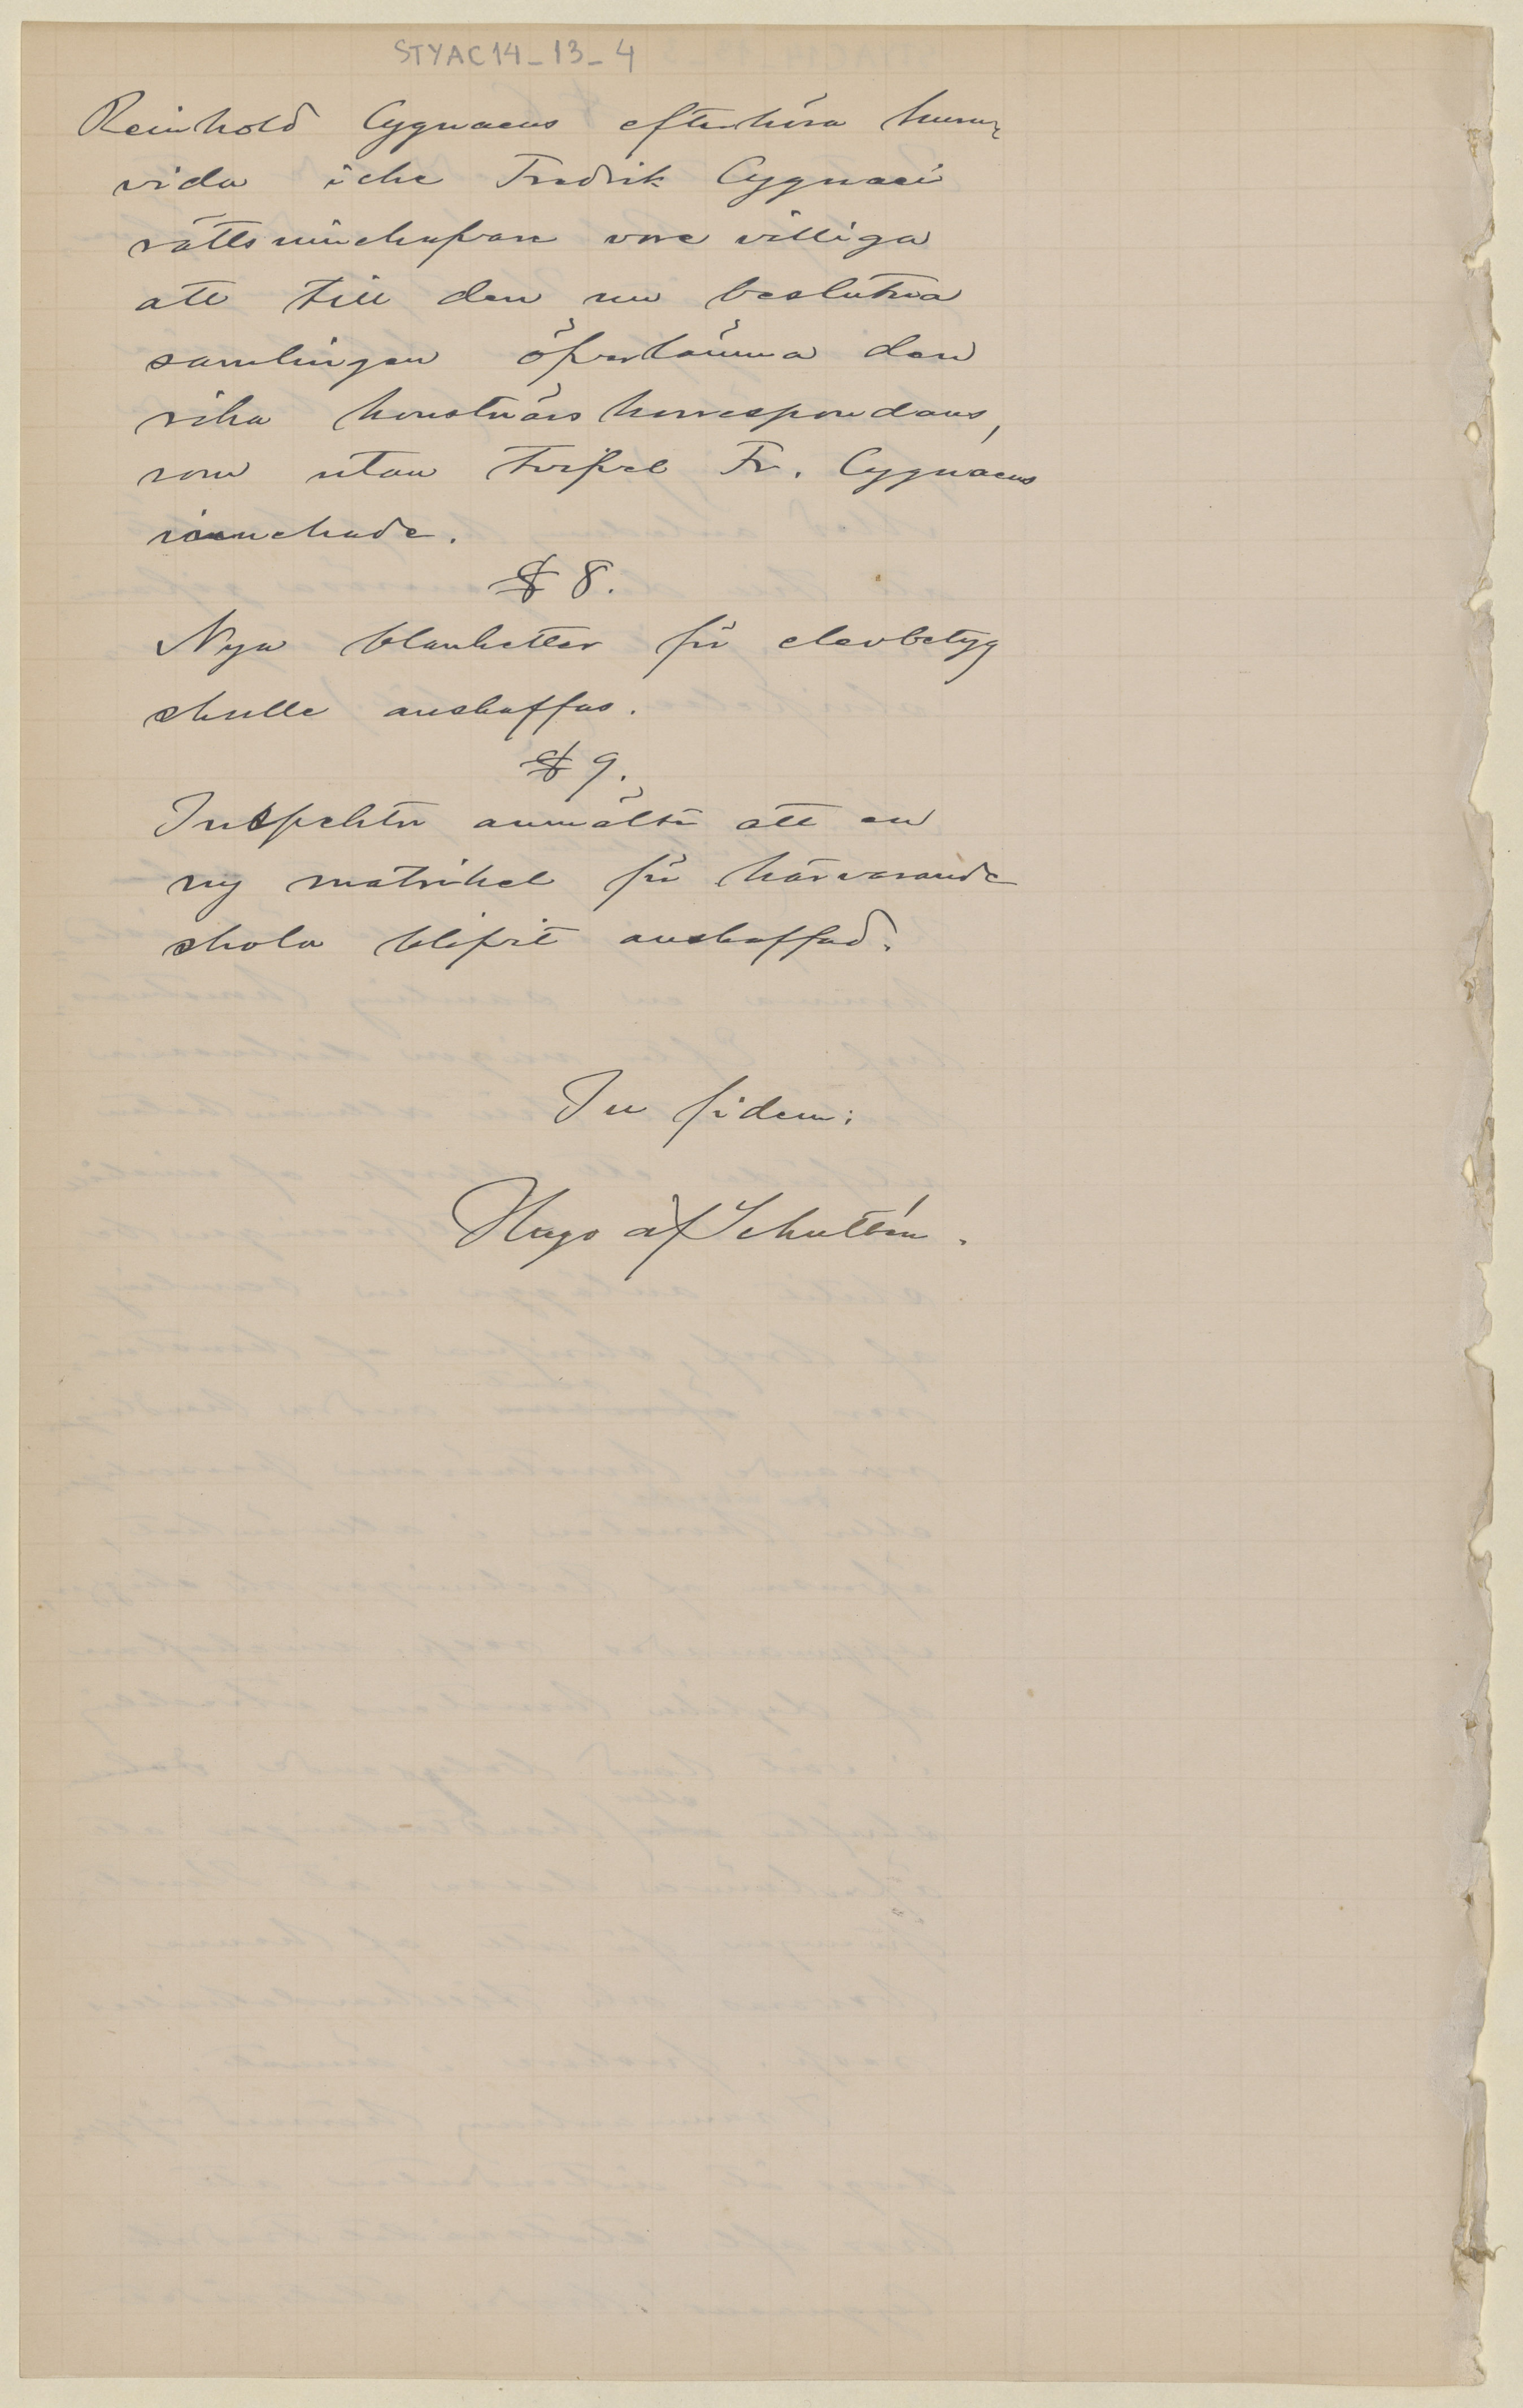 STYAC14_13_4
Reinhold Cygnaeus efterhöra huru-
vida icke Fredrik Cygnaei
rättsinnehafvare vore villiga
att till den nu beslutna
samlingen öfverlämna den
rika konstnärskorrespondans,
som utan tvifvel Fr. Cygnaeus
innehade.
§ 8.
Nya blanketter för elevbetyg
skulle anskaffas.
§ 9.
Inspektor anmälte att en
ny matrikel för härvarande
skola blifvit anskaffad.
In fidem:
Hugo af Schultén.